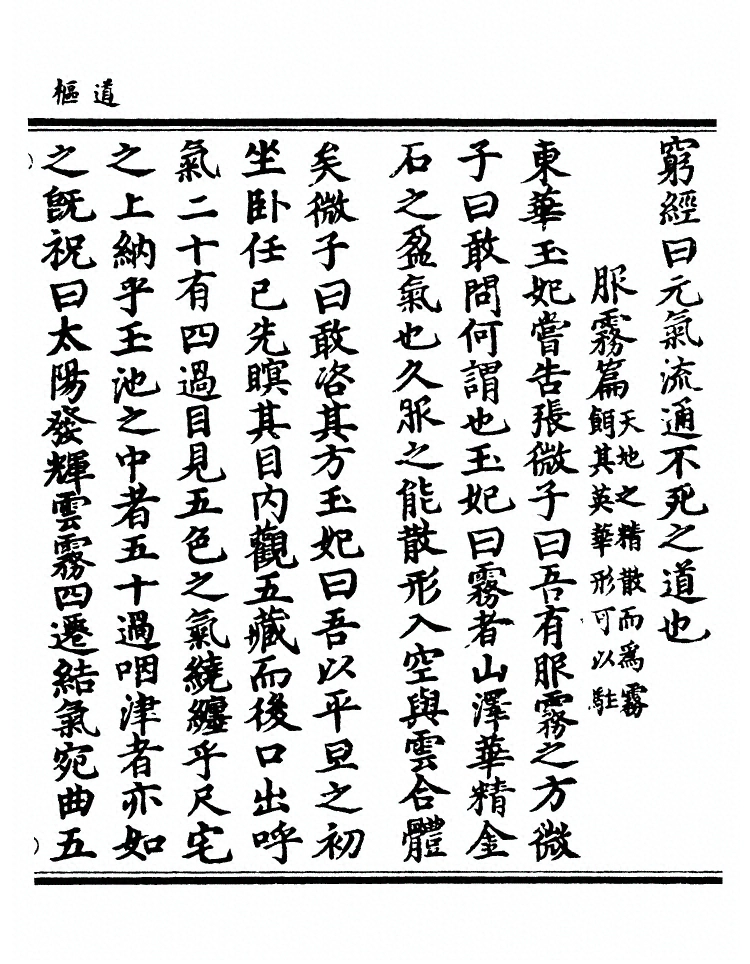 道樞
窮經曰元氣流通不死之道也
服霧篇
天地之精散而為霧
餌其英華形可以駐
東華玉妃嘗告張微子曰吾有服霧之方微
子曰敢問何謂也玉妃曰霧者山澤華精金
石之盈氣也久服之能散形入空與雲合體
矣微子曰敢咨其方玉妃曰吾以平旦之初
坐卧任已先瞑其目内觀五藏而後口出呼
氣二十有四過目見五色之氣繞纏乎尺宅
之上納乎玉池之中者五十過咽津者亦如
之旣祝曰太陽發輝雲霧四遷結氣宛曲五